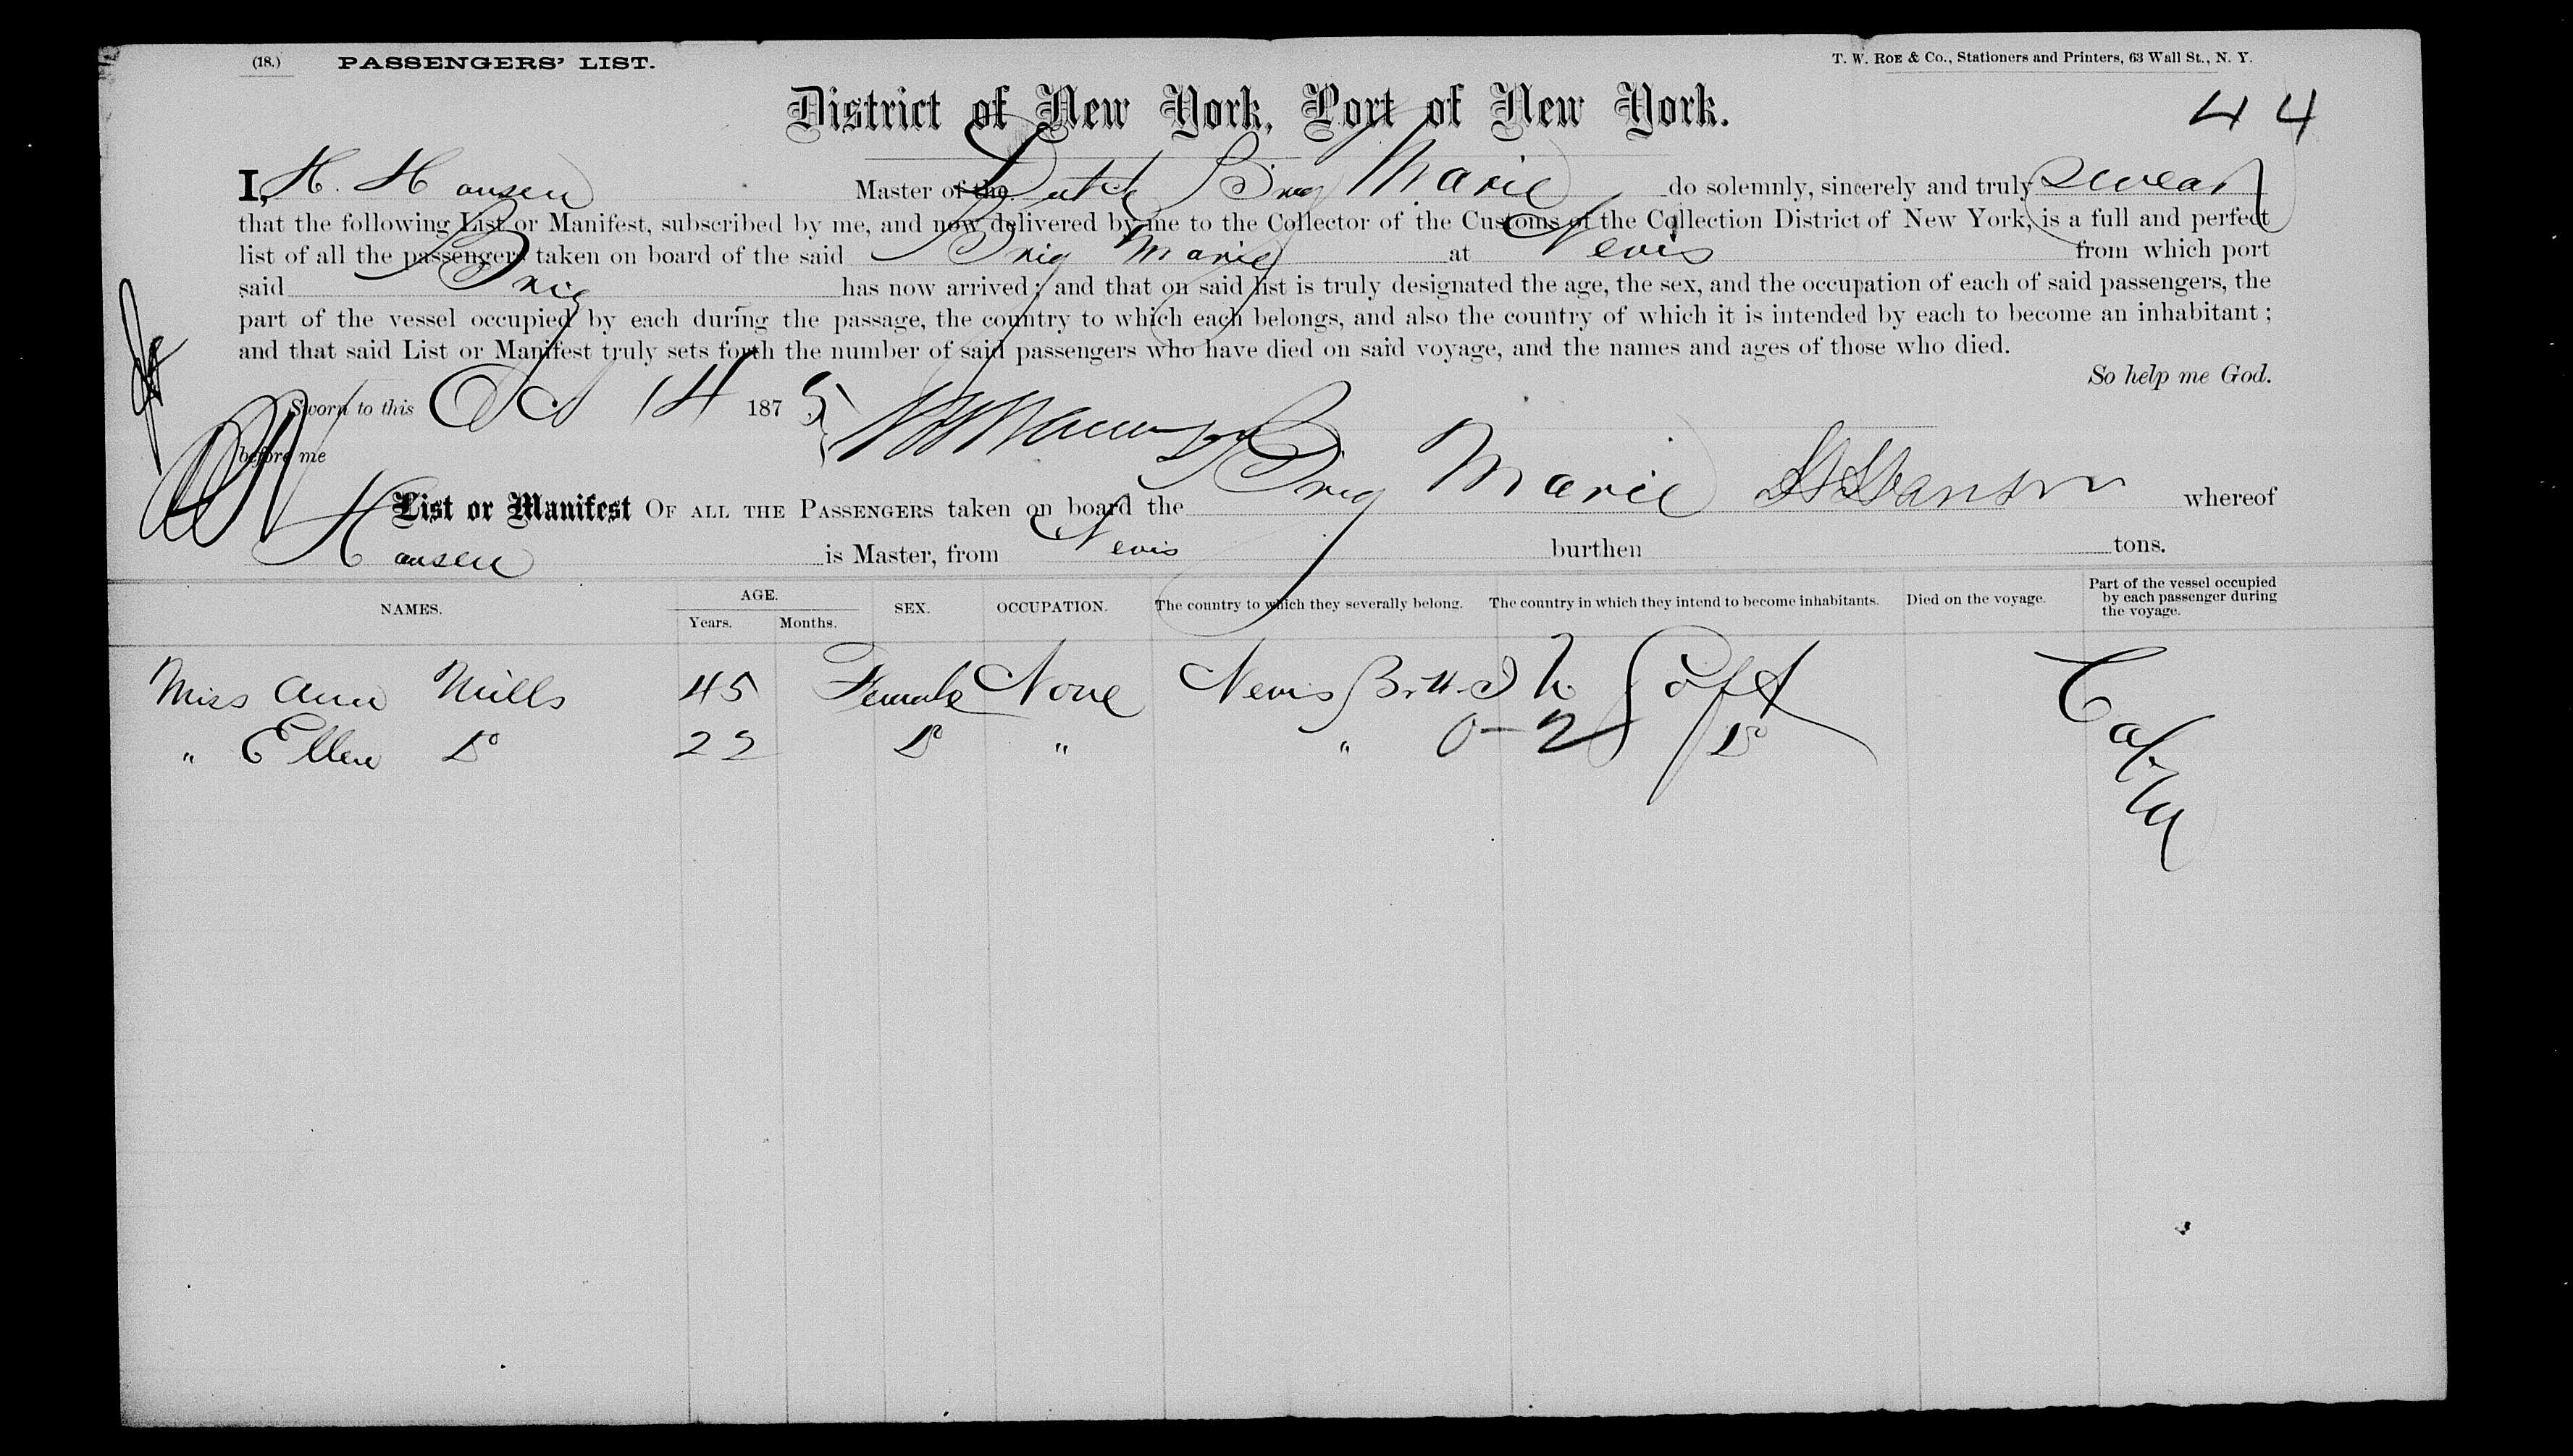 (18.) PASSENGERS' LIST. T. W. ROE & Co., Stationers and Printers, 63 Wall St., N. Y.
District of New York, Port of New York.
44
I, H. Hansen Master of the Dutch Brig Marie do solemnly, sincerely and truly swear
that the following List or Manifest, subscribed by me, and now delivered by me to the Collector of the Customs of the Collection District of New York, is a full and perfect
list of all the passengers taken on board of the said Brig Marie at Nevis from which port
said Brig has now arrived; and that on said list is truly designated the age, the sex, and the occupation of each of said passengers, the
part of the vessel occupied by each during the passage, the country to which each belongs, and also the country of which it is intended by each to become an inhabitant;
and that said List or Manifest truly sets forth the number of said passengers who have died on said voyage, and the names and ages of those who died.
So help me God.
Sworn to this Oct 14 1875
before me
List or Manifest OF ALL THE PASSENGERS taken on board the Brig Marie whereof
Hansen is Master, from Nevis burthen tons.
NAMES. AGE. Years. Months. SEX. OCCUPATION. The country to which they severally belong. The country in which they intend to become inhabitants. Died on the voyage. Part of the vessel occupied by each passenger during the voyage.
Miss Ann Mills 45 Female None Nevis Cabin
" Ellen Do 22 Do " " 0-2 Do